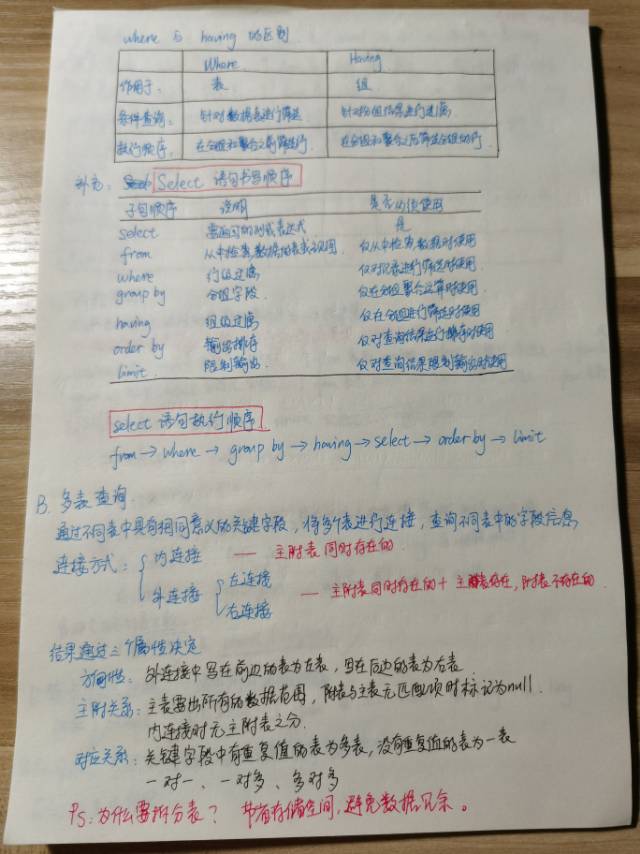 where 与 having 的区别
Where Having
作用于: 表 组
条件查询: 针对数据表进行筛选 针对分组结果进行过滤
执行顺序: 在分组和聚合之前筛选行 在分组和聚合之后筛选分组的行
补充: Select 语句书写顺序
子句顺序 说明 是否必须使用
select 要返回的列或表达式 是
from 从中检索数据的表或视图 仅从中检索数据时使用
where 行级过滤 仅对记录进行筛选时使用
group by 分组字段 仅在分组聚合运算时使用
having 组级过滤 仅在分组进行筛选时使用
order by 输出排序 仅对查询结果进行排序时使用
limit 限制输出 仅对查询结果限制输出时使用
select 语句执行顺序
from → where → group by → having → select → order by → limit
B. 多表查询
通过不同表中具有相同意义的关键字段, 将多个表进行连接, 查询不同表中的字段信息
连接方式: 内连接 — 主附表同时存在的
外连接 左连接 右连接 — 主附表同时存在的 + 主表存在, 附表不存在的
结果通过三个属性决定
方向性: 外连接中写在前边的表为左表, 写在后边的表为右表.
主附关系: 主表要出所有的数据范围, 附表与主表无匹配项时标记为null.
内连接时无主附表之分.
对应关系: 关键字段中有重复值的表为多表, 没有重复值的表为一表
一对一、一对多、多对多
Ps: 为什么要拆分表? 节省存储空间, 避免数据冗余。